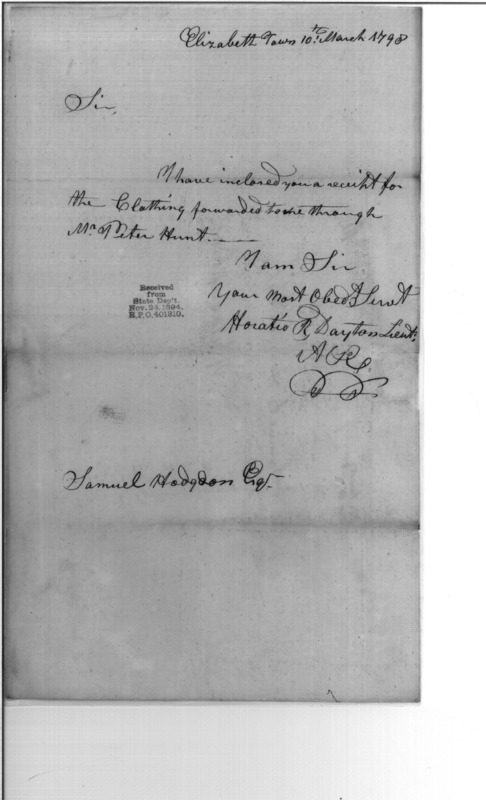 Elizabeth Town 10th March 1798
Sir,
I have inclosed you a receiht for
the Clothing forwarded to me through
Mr. Peter Hunt.
I am Sir
Your most Obedt Servt
Horatio R Dayton Lieut.
Received
from
State Dep't.
Nov. 24, 1894.
R.P.O. 401310.
Samuel Hodgdon Esqr.